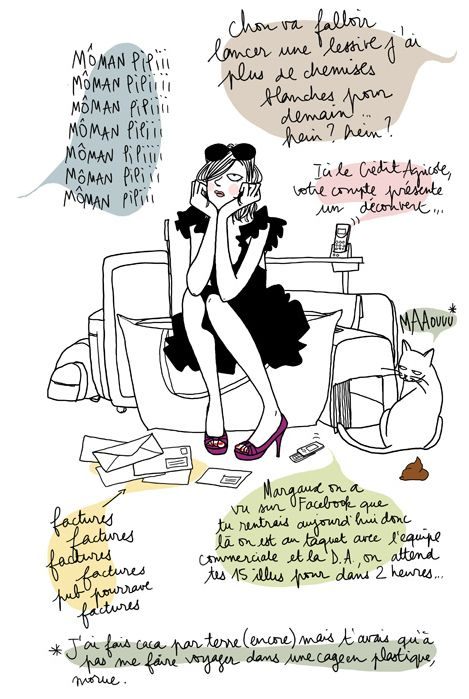 MÔMAN PiPiiii
MÔMAN PiPiiii
MÔMAN PiPiiii
MÔMAN PiPiiii
MÔMAN PiPiiii
MÔMAN PiPiiii
MÔMAN PiPiiii
Chou va falloir
lancer une lessive j'ai
plus de chemises
blanches pour
demain...
hein? hein?
Ici le Crédit Agricole,
votre compte présente
un découvert...
MAAouuu*
factures
factures
factures
factures
pub pourrave
factures
Margaux on a
vu sur Facebook que
tu rentrais aujourd'hui donc
là on est au taquet avec l'équipe
commerciale et la D.A, on attend
tes 15 illus pour dans 2 heures...
* J'ai fais caca par terre (encore) mais t'avais qu'à
pas me faire voyager dans une cage en plastique,
morue.